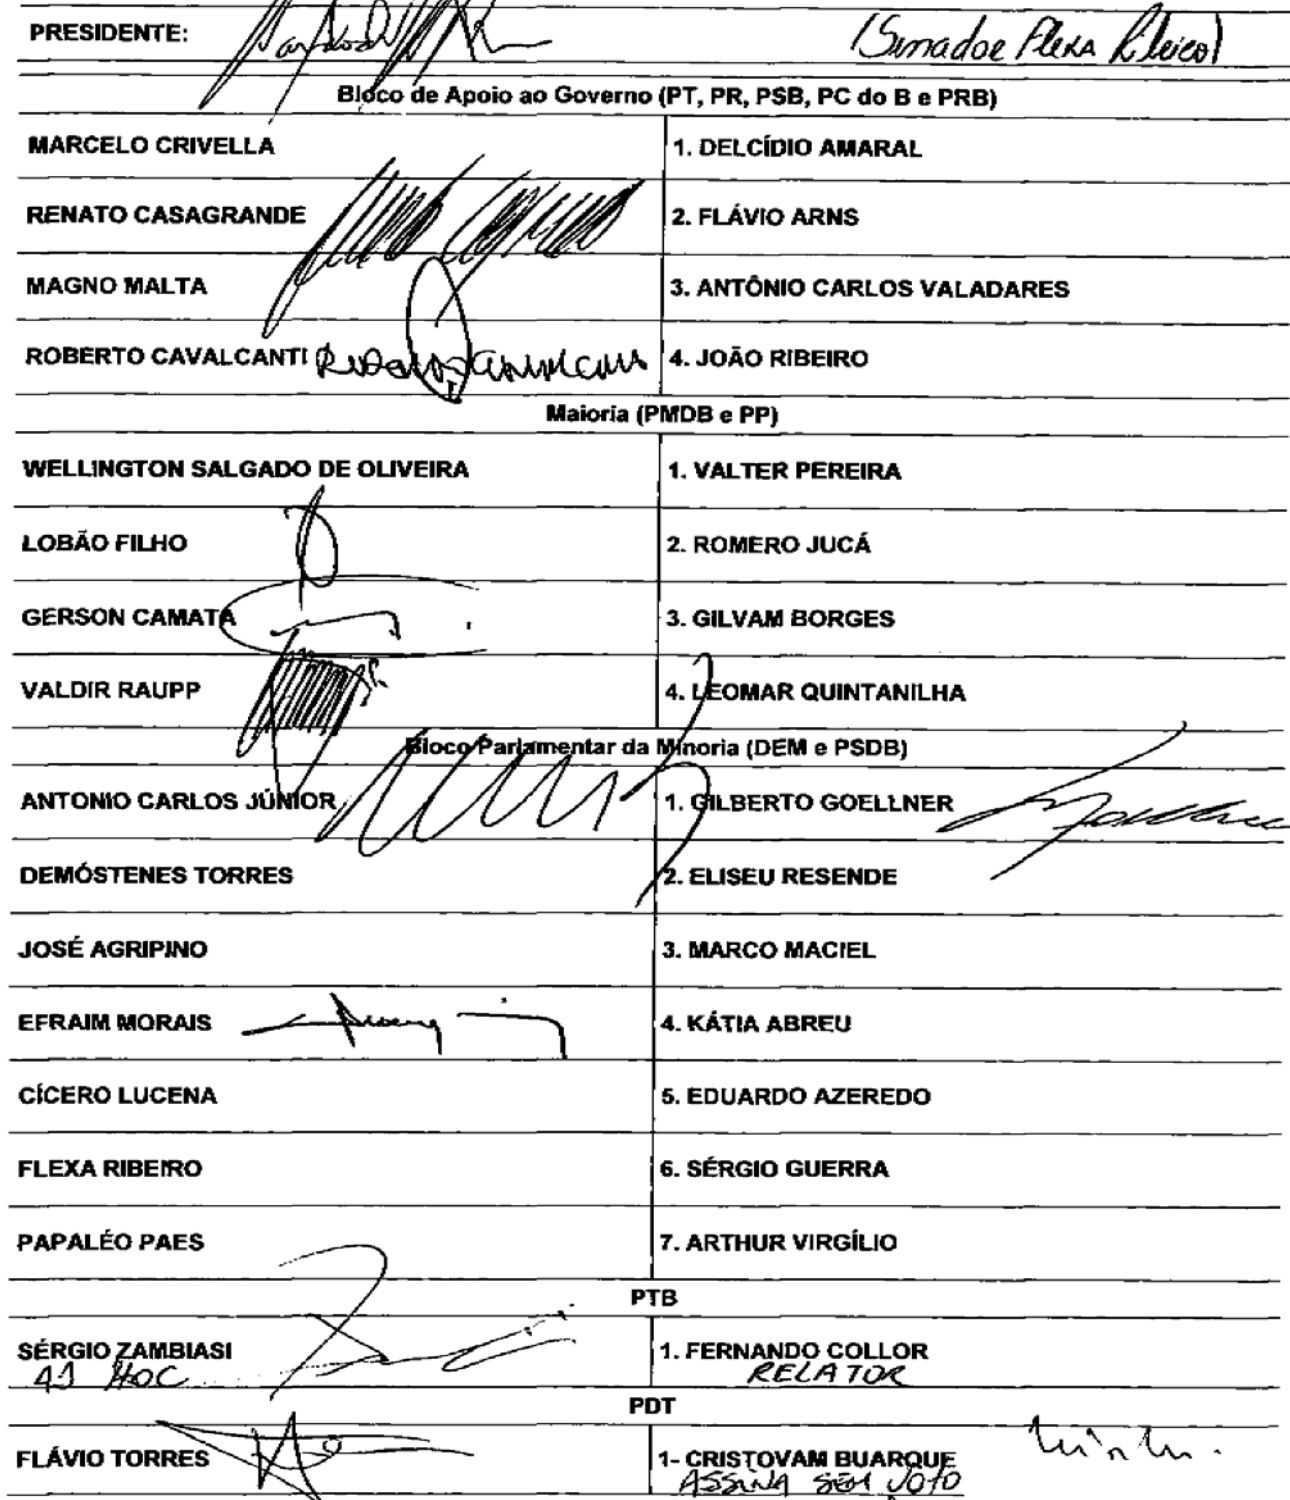 PRESIDENTE: (Senador Flexa Ribeiro)
Bloco de Apoio ao Governo (PT, PR, PSB, PC do B e PRB)
MARCELO CRIVELLA 1. DELCÍDIO AMARAL
RENATO CASAGRANDE 2. FLÁVIO ARNS
MAGNO MALTA 3. ANTÔNIO CARLOS VALADARES
ROBERTO CAVALCANTI 4. JOÃO RIBEIRO
Maioria (PMDB e PP)
WELLINGTON SALGADO DE OLIVEIRA 1. VALTER PEREIRA
LOBÃO FILHO 2. ROMERO JUCÁ
GERSON CAMATA 3. GILVAM BORGES
VALDIR RAUPP 4. LEOMAR QUINTANILHA
Bloco Parlamentar da Minoria (DEM e PSDB)
ANTONIO CARLOS JÚNIOR 1. GILBERTO GOELLNER
DEMÓSTENES TORRES 2. ELISEU RESENDE
JOSÉ AGRIPINO 3. MARCO MACIEL
EFRAIM MORAIS 4. KÁTIA ABREU
CÍCERO LUCENA 5. EDUARDO AZEREDO
FLEXA RIBEIRO 6. SÉRGIO GUERRA
PAPALÉO PAES 7. ARTHUR VIRGÍLIO
PTB
SÉRGIO ZAMBIASI 1. FERNANDO COLLOR
AD HOC RELATOR
PDT
FLÁVIO TORRES 1- CRISTOVAM BUARQUE
ASSINA SEM VOTO